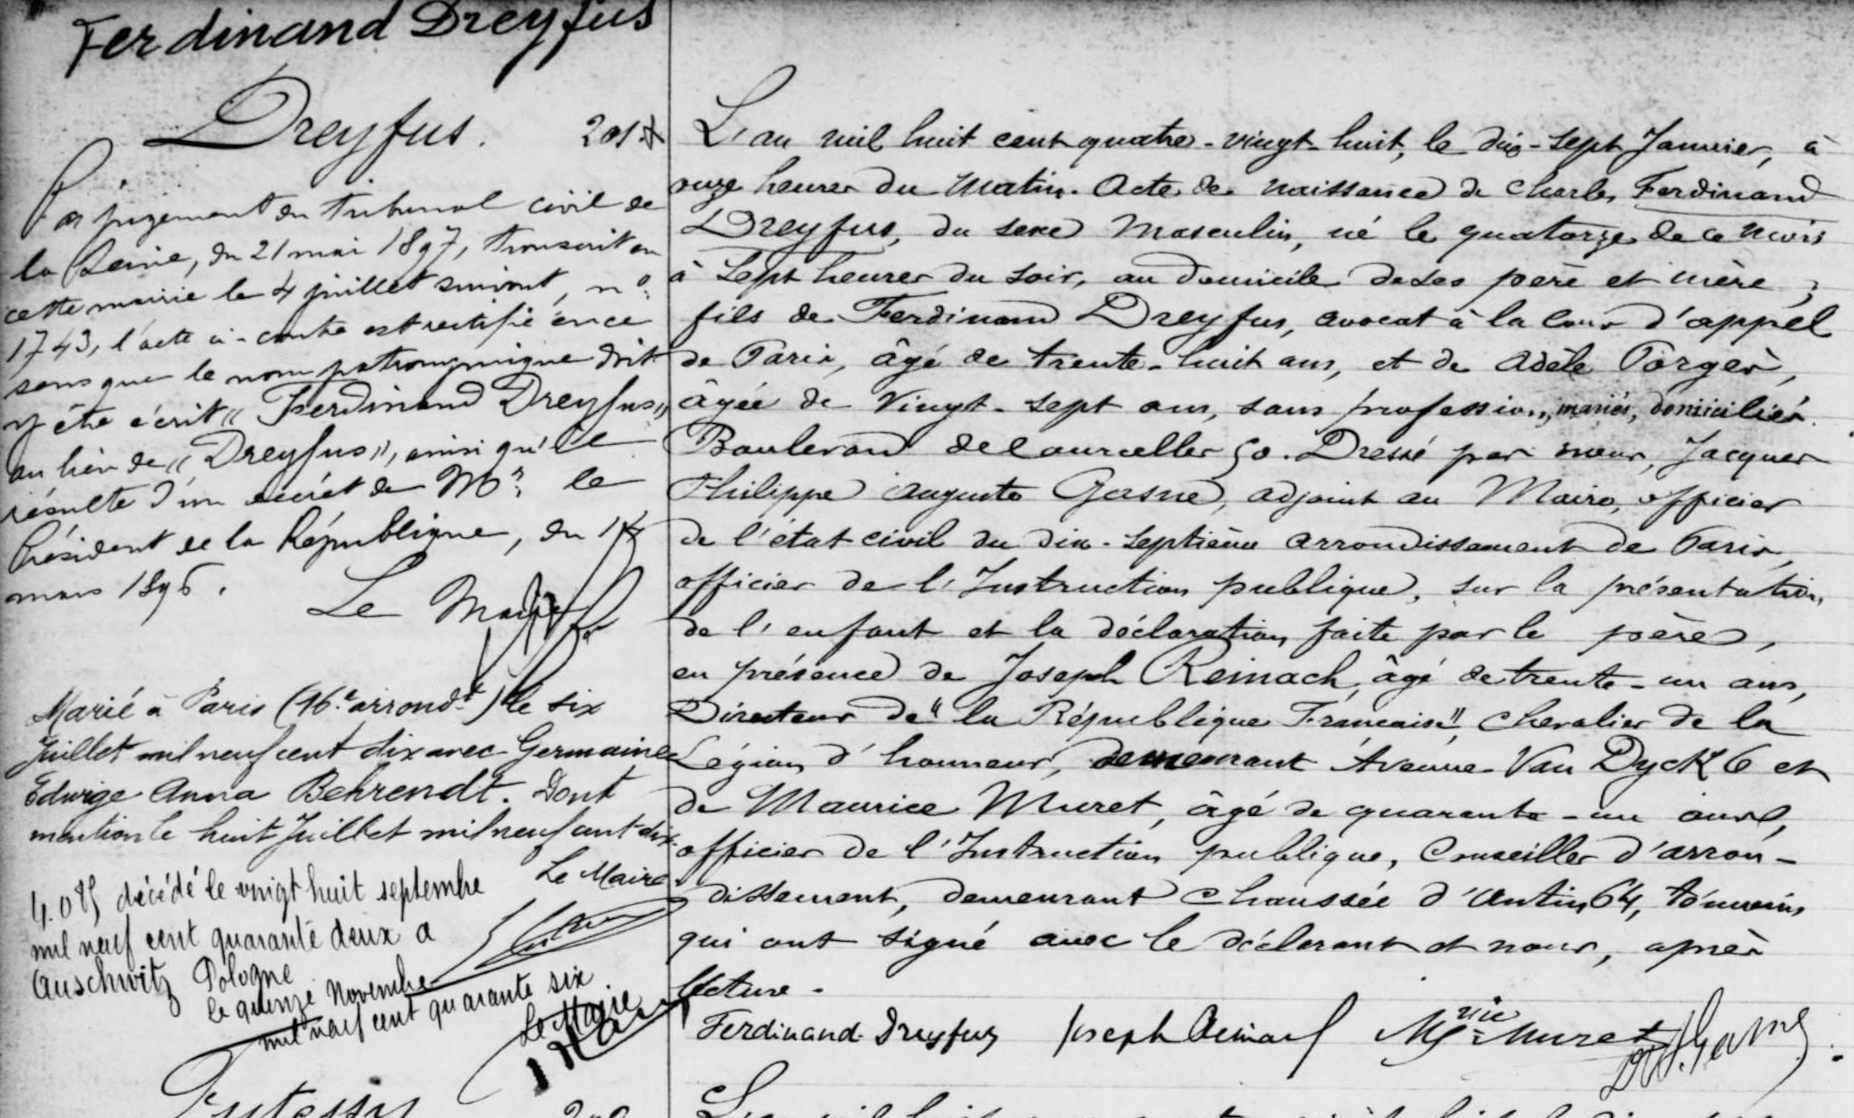 Ferdinand Dreyfus
Dreyfus. 201
Par jugement du Tribunal civil de
la Seine, du 21 mai 1897, transcrit en
cette mairie le 4 juillet suivant, nº
1743, l'acte ci-contre est rectifié en ce
sens que le nom patronymique doit
y être écrit "Ferdinand Dreyfus"
au lieu de "Dreyfus", ainsi qu'il
résulte d'un décret de Mr. le
Président de la République, du
mars 1896.
Le Maire
Marié à Paris (16e arrondt) le six
Juillet mil neuf cent dix avec Germaine
Edwige Anna Behrendt. Dont
mention le huit Juillet mil neuf cent dix.
Le Maire
décédé le vingt huit septembre
mil neuf cent quarante deux a
Auschwitz Pologne
le quinze Novembre
mil neuf cent quarante six
Le Maire
L'an mil huit cent quatre-vingt-huit, le dix-sept Janvier, à
onze heures du matin. Acte de naissance de Charles Ferdinand
Dreyfus, du sexe masculin, né le quatorze de ce mois
à sept heures du soir, au domicile de ses père et mère ;
fils de Ferdinand Dreyfus, avocat à la Cour d'appel
de Paris, âgé de trente-huit ans, et de Adèle Porgès,
âgée de vingt-sept ans, sans profession, mariés, domiciliés
Boulevard de Courcelles 50. Dressé par nous, Jacques
Philippe Auguste Gasne, adjoint au Maire, officier
de l'état civil du dix-septième arrondissement de Paris,
officier de l'Instruction publique, sur la présentation
de l'enfant et la déclaration faite par le père,
en présence de Joseph Reinach, âgé de trente-un ans,
Directeur de "la République Française", chevalier de la
Légion d'honneur, demeurant Avenue Van Dyck 6 et
de Maurice Muret, âgé de quarante-un ans,
officier de l'Instruction publique, Conseiller d'arron-
dissement, demeurant Chaussée d'Antin 64, témoins
qui ont signé avec le déclarant et nous, après
lecture.
Ferdinand Dreyfus Joseph Reinach Mce Muret Gasne